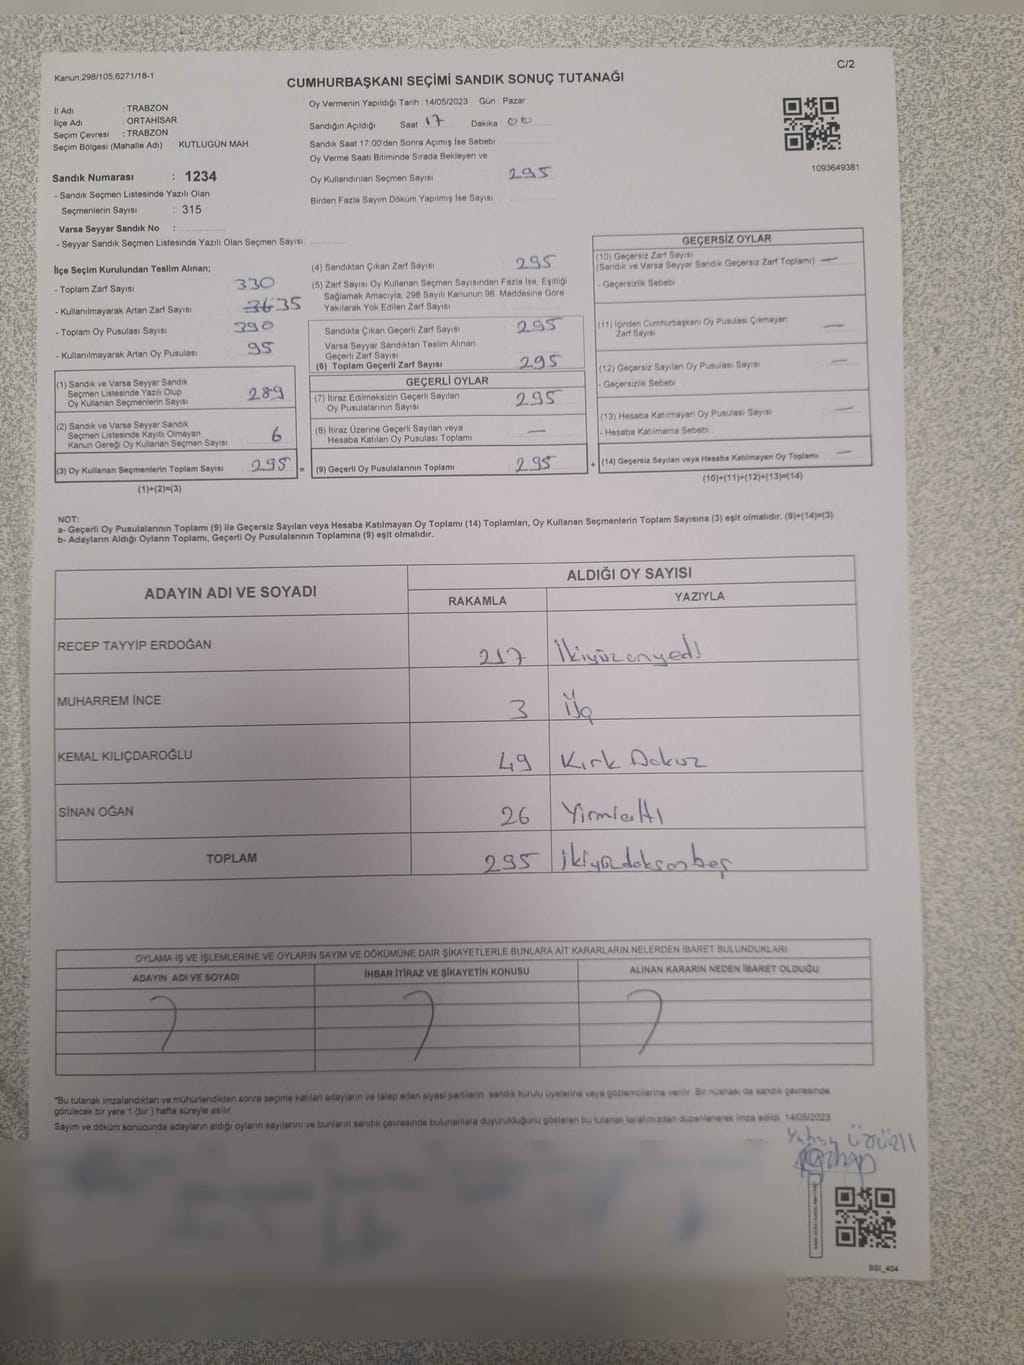 Kanun:298/105,6271/18-1
C/2
CUMHURBAŞKANI SEÇİMİ SANDIK SONUÇ TUTANAĞI
İl Adı : TRABZON
İlçe Adı : ORTAHİSAR
Seçim Çevresi : TRABZON
Seçim Bölgesi (Mahalle Adı) : KUTLUGÜN MAH.
Sandık Numarası : 1234
- Sandık Seçmen Listesinde Yazılı Olan
Seçmenlerin Sayısı : 315
Varsa Seyyar Sandık No :
- Seyyar Sandık Seçmen Listesinde Yazılı Olan Seçmen Sayısı:
Oy Vermenin Yapıldığı Tarih : 14/05/2023 Gün : Pazar
Sandığın Açıldığı Saat 17 Dakika : 00
Sandık Saat 17:00'den Sonra Açımış İse Sebebi
Oy Verme Saati Bitiminde Sırada Bekleyen ve
Oy Kullandırılan Seçmen Sayısı 295
Birden Fazla Sayım Döküm Yapılmış İse Sayısı
1093649381
İlçe Seçim Kurulundan Teslim Alınan;
- Toplam Zarf Sayısı 330
- Kullanılmayarak Artan Zarf Sayısı 35
- Toplam Oy Pusulası Sayısı 390
- Kullanılmayarak Artan Oy Pusulası 95
(1) Sandık ve Varsa Seyyar Sandık
Seçmen Listesinde Yazılı Olup
Oy Kullanan Seçmenlerin Sayısı 289
(2) Sandık ve Varsa Seyyar Sandık
Seçmen Listesinde Kayıtlı Olmayan
Kanun Gereği Oy Kullanan Seçmen Sayısı 6
(3) Oy Kullanan Seçmenlerin Toplam Sayısı 295 =
(1)+(2)=(3)
(4) Sandıktan Çıkan Zarf Sayısı 295
(5) Zarf Sayısı Oy Kullanan Seçmen Sayısından Fazla İse, Eşitliği
Sağlamak Amacıyla, 298 Sayılı Kanunun 98. Maddesine Göre
Yakılarak Yok Edilen Zarf Sayısı
Sandıkta Çıkan Geçerli Zarf Sayısı 295
Varsa Seyyar Sandıktan Teslim Alınan
Geçerli Zarf Sayısı
(6) Toplam Geçerli Zarf Sayısı 295
GEÇERLİ OYLAR
(7) İtiraz Edilmeksizin Geçerli Sayılan
Oy Pusulalarının Sayısı 295
(8) İtiraz Üzerine Geçerli Sayılan veya
Hesaba Katılan Oy Pusulası Toplamı —
(9) Geçerli Oy Pusulalarının Toplamı 295 +
GEÇERSİZ OYLAR
(10) Geçersiz Zarf Sayısı
(Sandık ve Varsa Seyyar Sandık Geçersiz Zarf Toplamı) —
- Geçersizlik Sebebi :
(11) İçinden Cumhurbaşkanı Oy Pusulası Çıkmayan
Zarf Sayısı —
(12) Geçersiz Sayılan Oy Pusulası Sayısı —
- Geçersizlik Sebebi :
(13) Hesaba Katılmayan Oy Pusulası Sayısı —
- Hesaba Katılmama Sebebi :
(14) Geçersiz Sayılan veya Hesaba Katılmayan Oy Toplamı —
(10)+(11)+(12)+(13)=(14)
NOT:
a- Geçerli Oy Pusulalarının Toplamı (9) ile Geçersiz Sayılan veya Hesaba Katılmayan Oy Toplamı (14) Toplamları, Oy Kullanan Seçmenlerin Toplam Sayısına (3) eşit olmalıdır. (9)+(14)=(3)
b- Adayların Aldığı Oyların Toplamı, Geçerli Oy Pusulalarının Toplamına (9) eşit olmalıdır.
ADAYIN ADI VE SOYADI ALDIĞI OY SAYISI
RAKAMLA YAZIYLA
RECEP TAYYİP ERDOĞAN 217 İkiyüzonyedi
MUHARREM İNCE 3 Üç
KEMAL KILIÇDAROĞLU 49 Kırk Dokuz
SİNAN OĞAN 26 Yirmialtı
TOPLAM 295 ikiyüzdoksanbeş
OYLAMA İŞ VE İŞLEMLERİNE VE OYLARIN SAYIM VE DÖKÜMÜNE DAİR ŞİKAYETLERLE BUNLARA AİT KARARLARIN NELERDEN İBARET BULUNDUKLARI
ADAYIN ADI VE SOYADI İHBAR İTİRAZ VE ŞİKAYETİN KONUSU ALINAN KARARIN NEDEN İBARET OLDUĞU
"Bu tutanak imzalandıktan ve mühürlendikten sonra seçime katılan adayların ve talep eden siyasi partilerin sandık kurulu üyelerine veya gözlemcilerine verilir. Bir nüshası da sandık çevresinde
görülecek bir yere 1 (bir ) hafta süreyle asılır.
Sayım ve döküm sonucunda adayların aldığı oyların sayılarını ve bunların sandık çevresinde bulunanlara duyurulduğunu gösteren bu tutanak tarafımızdan düzenlenerek imza edildi. 14/05/2023
SSI_404